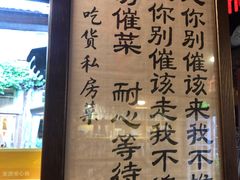 你别催该来我不
你别催该走我不
勿催菜 耐心等待
吃货私房菜